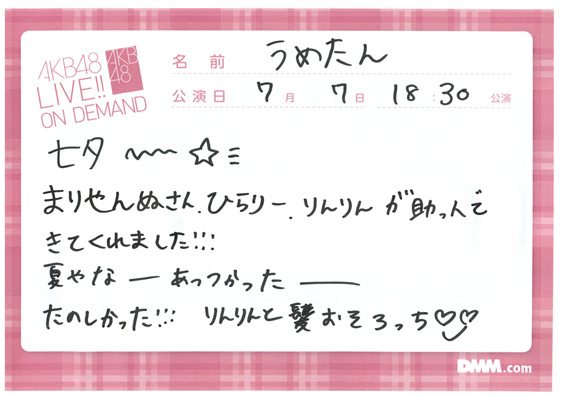 AKB48
LIVE!!
ON DEMAND
AKB
48
名前 うめたん
公演日 7月 7日 18:30 公演
七夕 〜〜 ☆ミ
まりやんぬさん、ひらりー、りんりん が助っ人で
きてくれました!!!
夏やなー あっつかったー
たのしかった!!! りんりんと髪おそろっち♡♡
DMM.com